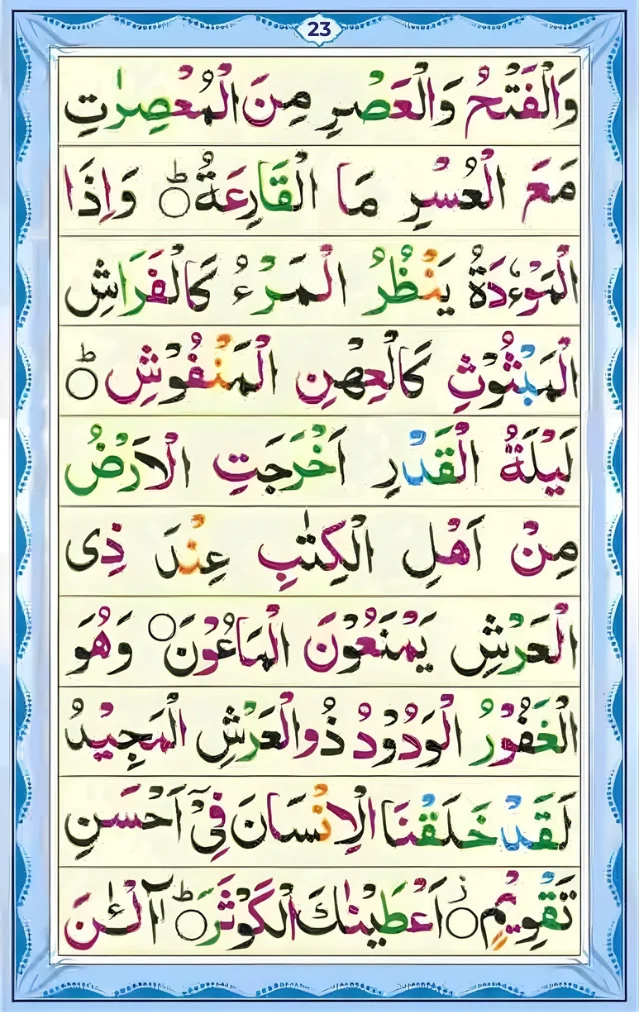 23
وَالْفَتْحُ وَالْعَصْرِ مِنَ الْمُعْصِرٰتِ
مَعَ الْعُسْرِ مَا الْقَارِعَةُ ۝ؕ وَاِذَا
الْمَوْءٗدَةُ يَنْظُرُ الْمَرْءُ كَالْفَرَاشِ
الْمَبْثُوْثِ كَالْعِهْنِ الْمَنْفُوْشِ ۝ؕ
لَيْلَةُ الْقَدْرِ اَخْرَجَتِ الْاَرْضُ
مِنْ اَهْلِ الْكِتٰبِ عِنْدَ ذِى
الْعَرْشِ يَمْنَعُوْنَ الْمَاعُوْنَ ۝ وَهُوَ
الْغَفُوْرُ الْوَدُوْدُ ذُوالْعَرْشِ الْمَجِيْدُ
لَقَدْ خَلَقْنَا الْاِنْسَانَ فِىْٓ اَحْسَنِ
تَقْوِيْمٍ ۝ اَعْطَيْنٰكَ الْكَوْثَرَ ۝ؕ آلْـٰٔنَ